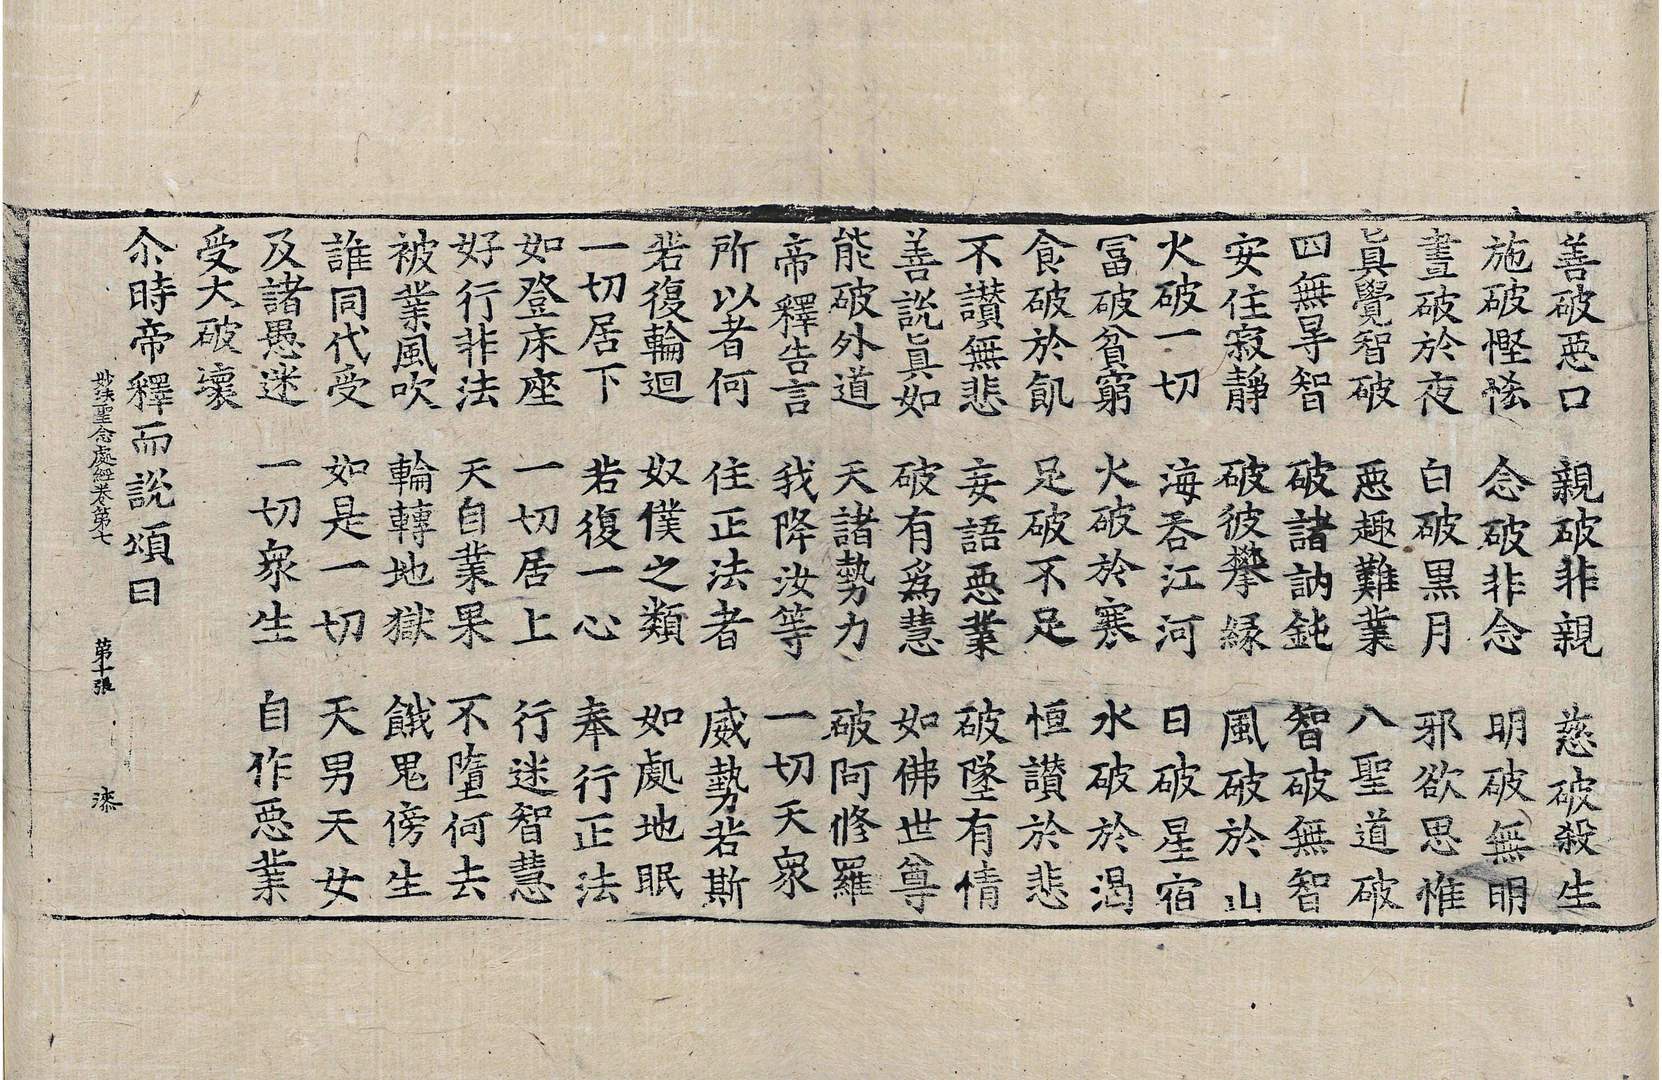 善破惡口　親破非親　慈破殺生
施破慳恡　念破非念　明破無明
晝破於夜　白破黒月　邪欲思惟
真覺智破　惡趣難業　八聖道破
四無㝵智　破諸訥鈍　智破無智
安住寂靜　破彼攀縁　風破於山
火破一切　海吞江河　日破星宿
冨破貧窮　火破於寒　水破於渴
食破於飢　足破不足　恒讃於悲
不讃無悲　妄語惡業　破墜有情
善說真如　破有爲慧　如佛世尊
能破外道　天諸勢力　破阿修羅
帝釋告言　我降汝等　一切天衆
所以者何　住正法者　威勢若斯
若復輪迴　奴僕之類　如處地眠
一切居下　若復一心　奉行正法
如登床座　一切居上　行迷智慧
好行非法　天自業果　不墮何去
被業風吹　輪轉地獄　餓鬼傍生
誰同代受　如是一切　天男天女
及諸愚迷　一切衆生　自作惡業
受大破壞
尒時帝釋而說頌曰
妙法聖念處經卷第七　第十張　漆